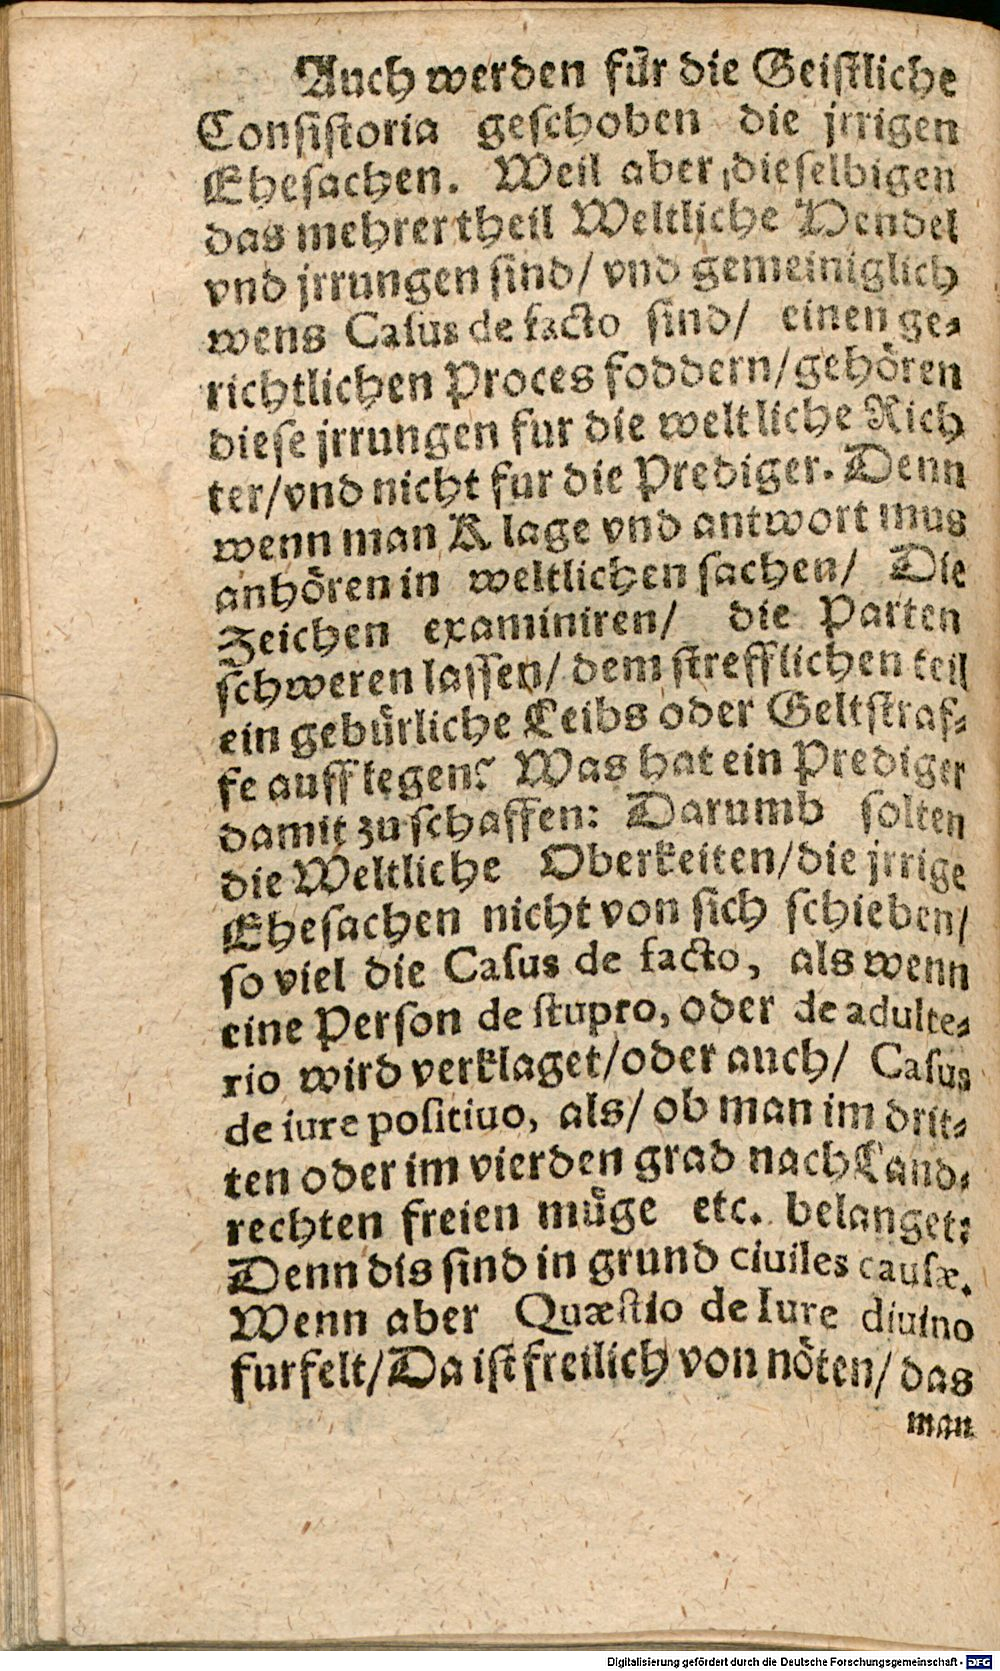 Auch werden für die Geistliche
Consistoria geschoben die jrrigen
Ehesachen. Weil aber dieselbigen
das mehrer theil Weltliche Hendel
vnd jrrungen sind/ vnd gemeiniglich
wens Casus de facto sind/ einen ge-
richtlichen Proces foddern/ gehören
diese jrrungen fur die weltliche Rich
ter/ vnd nicht fur die Prediger. Denn
wenn man Klage vnd antwort mus
anhören in weltlichen sachen/ Die
Zeichen examiniren/ die Parten
schweren lassen/ dem strefflichen teil
ein gebürliche Leibs oder Geltstraf-
fe aufflegen? Was hat ein Prediger
damit zu schaffen: Darumb solten
die Weltliche Oberkeiten/ die jrrige
Ehesachen nicht von sich schieben/
so viel die Casus de facto, als wenn
eine Person de stupro, oder de adulte-
rio wird verklaget/ oder auch/ Casus
de iure positiuo, als/ ob man im drit-
ten oder im vierden grad nach Land-
rechten freien müge etc. belanget:
Denn dis sind in grund ciuiles causæ.
Wenn aber Quæstio de Iure diuino
furfelt/ Da ist freilich von nöten/ das
man
Digitalisierung gefördert durch die Deutsche Forschungsgemeinschaft - DFG